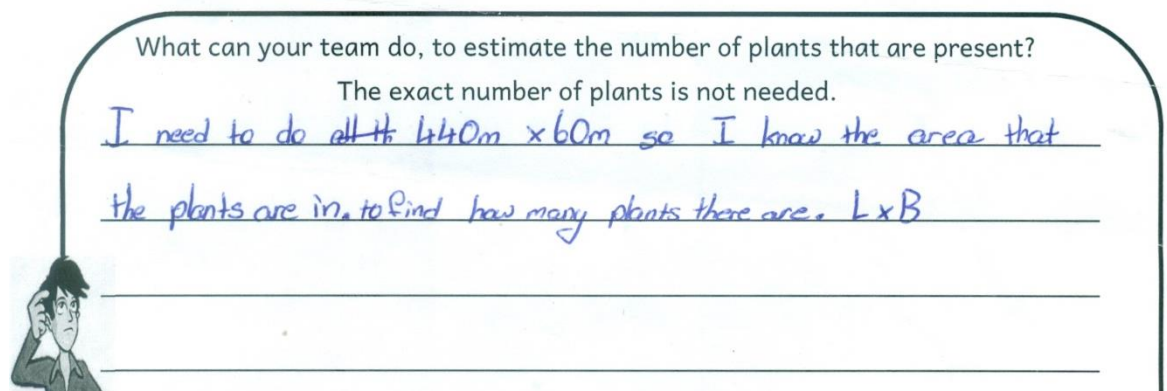 What can your team do, to estimate the number of plants that are present?
The exact number of plants is not needed.
I need to do 440m x 60m so I know the area that
the plants are in. to find how many plants there are. L x B